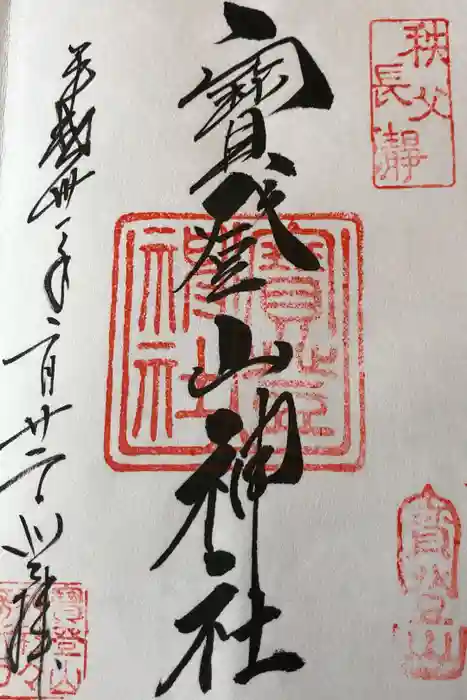 秩父
長瀞
寶登山神社
寶登山
神社
平成卅一年二月廿二日登拝
寶登山